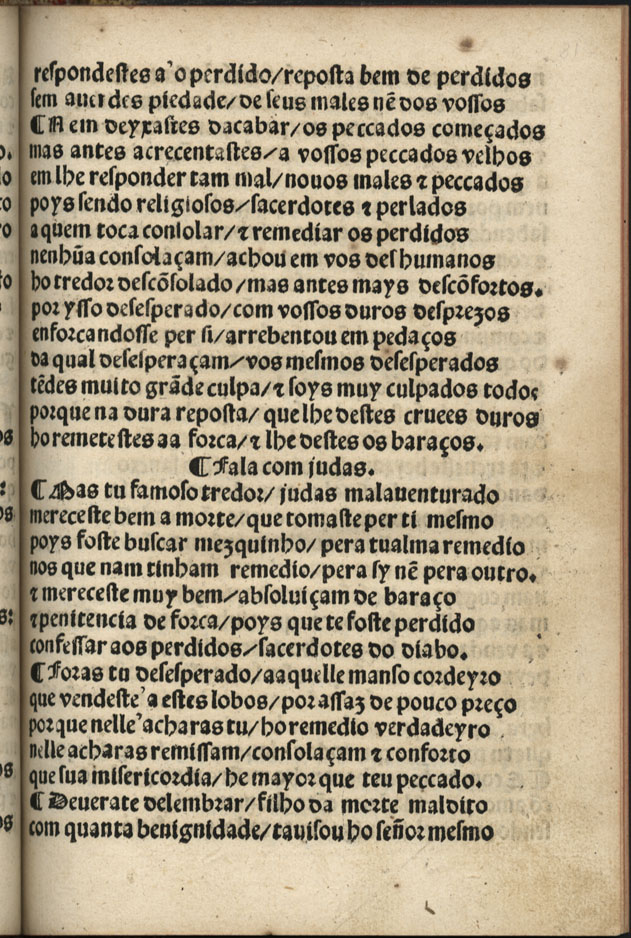 respondestes a'o perdido/reposta bem de perdidos
sem auerdes piedade/de seus males nẽ dos vossos
¶ Nem deyxastes dacabar/os peccados começados
mas antes acrecentastes/a vossos peccados velhos
em lhe responder tam mal/nouos males ⁊ peccados
poys sendo religiosos/sacerdotes ⁊ perlados
aquem toca consolar/⁊ remediar os perdidos
nenhũa consolaçam/achou em vos deshumanos
ho tredor descõsolado/mas antes mays descõfortos.
por ysso desesperado/com vossos duros desprezos
enforcandosse per si/arrebentou em pedaços
da qual desesperaçam/vos mesmos desesperados
tẽdes muito grãde culpa/⁊ soys muy culpados todos
porque na dura reposta/ que lhe destes cruees duros
ho remetestes aa forca/⁊ lhe destes os baraços.
¶ Fala com judas.
¶ Mas tu famoso tredor/ judas malauenturado
mereceste bem a morte/que tomaste per ti mesmo
poys foste buscar mezquinho/pera tualma remedio
nos que nam tinham remedio/pera sy nẽ pera outro.
⁊ mereceste muy bem/absoluiçam de baraço
⁊penitencia de forca/poys que te foste perdido
confessar aos perdidos/sacerdotes do diabo.
¶ Foras tu desesperado/aaquelle manso cordeyro
que vendeste'a estes lobos/por assaz de pouco preço
porque nelle'acharas tu/ho remedio verdadeyro
nelle acharas remissam/consolaçam ⁊ conforto
que sua misericordia/he mayor que teu peccado.
¶ Deuerate delembrar/filho da morte maldito
com quanta benignidade/tauisou ho señor mesmo